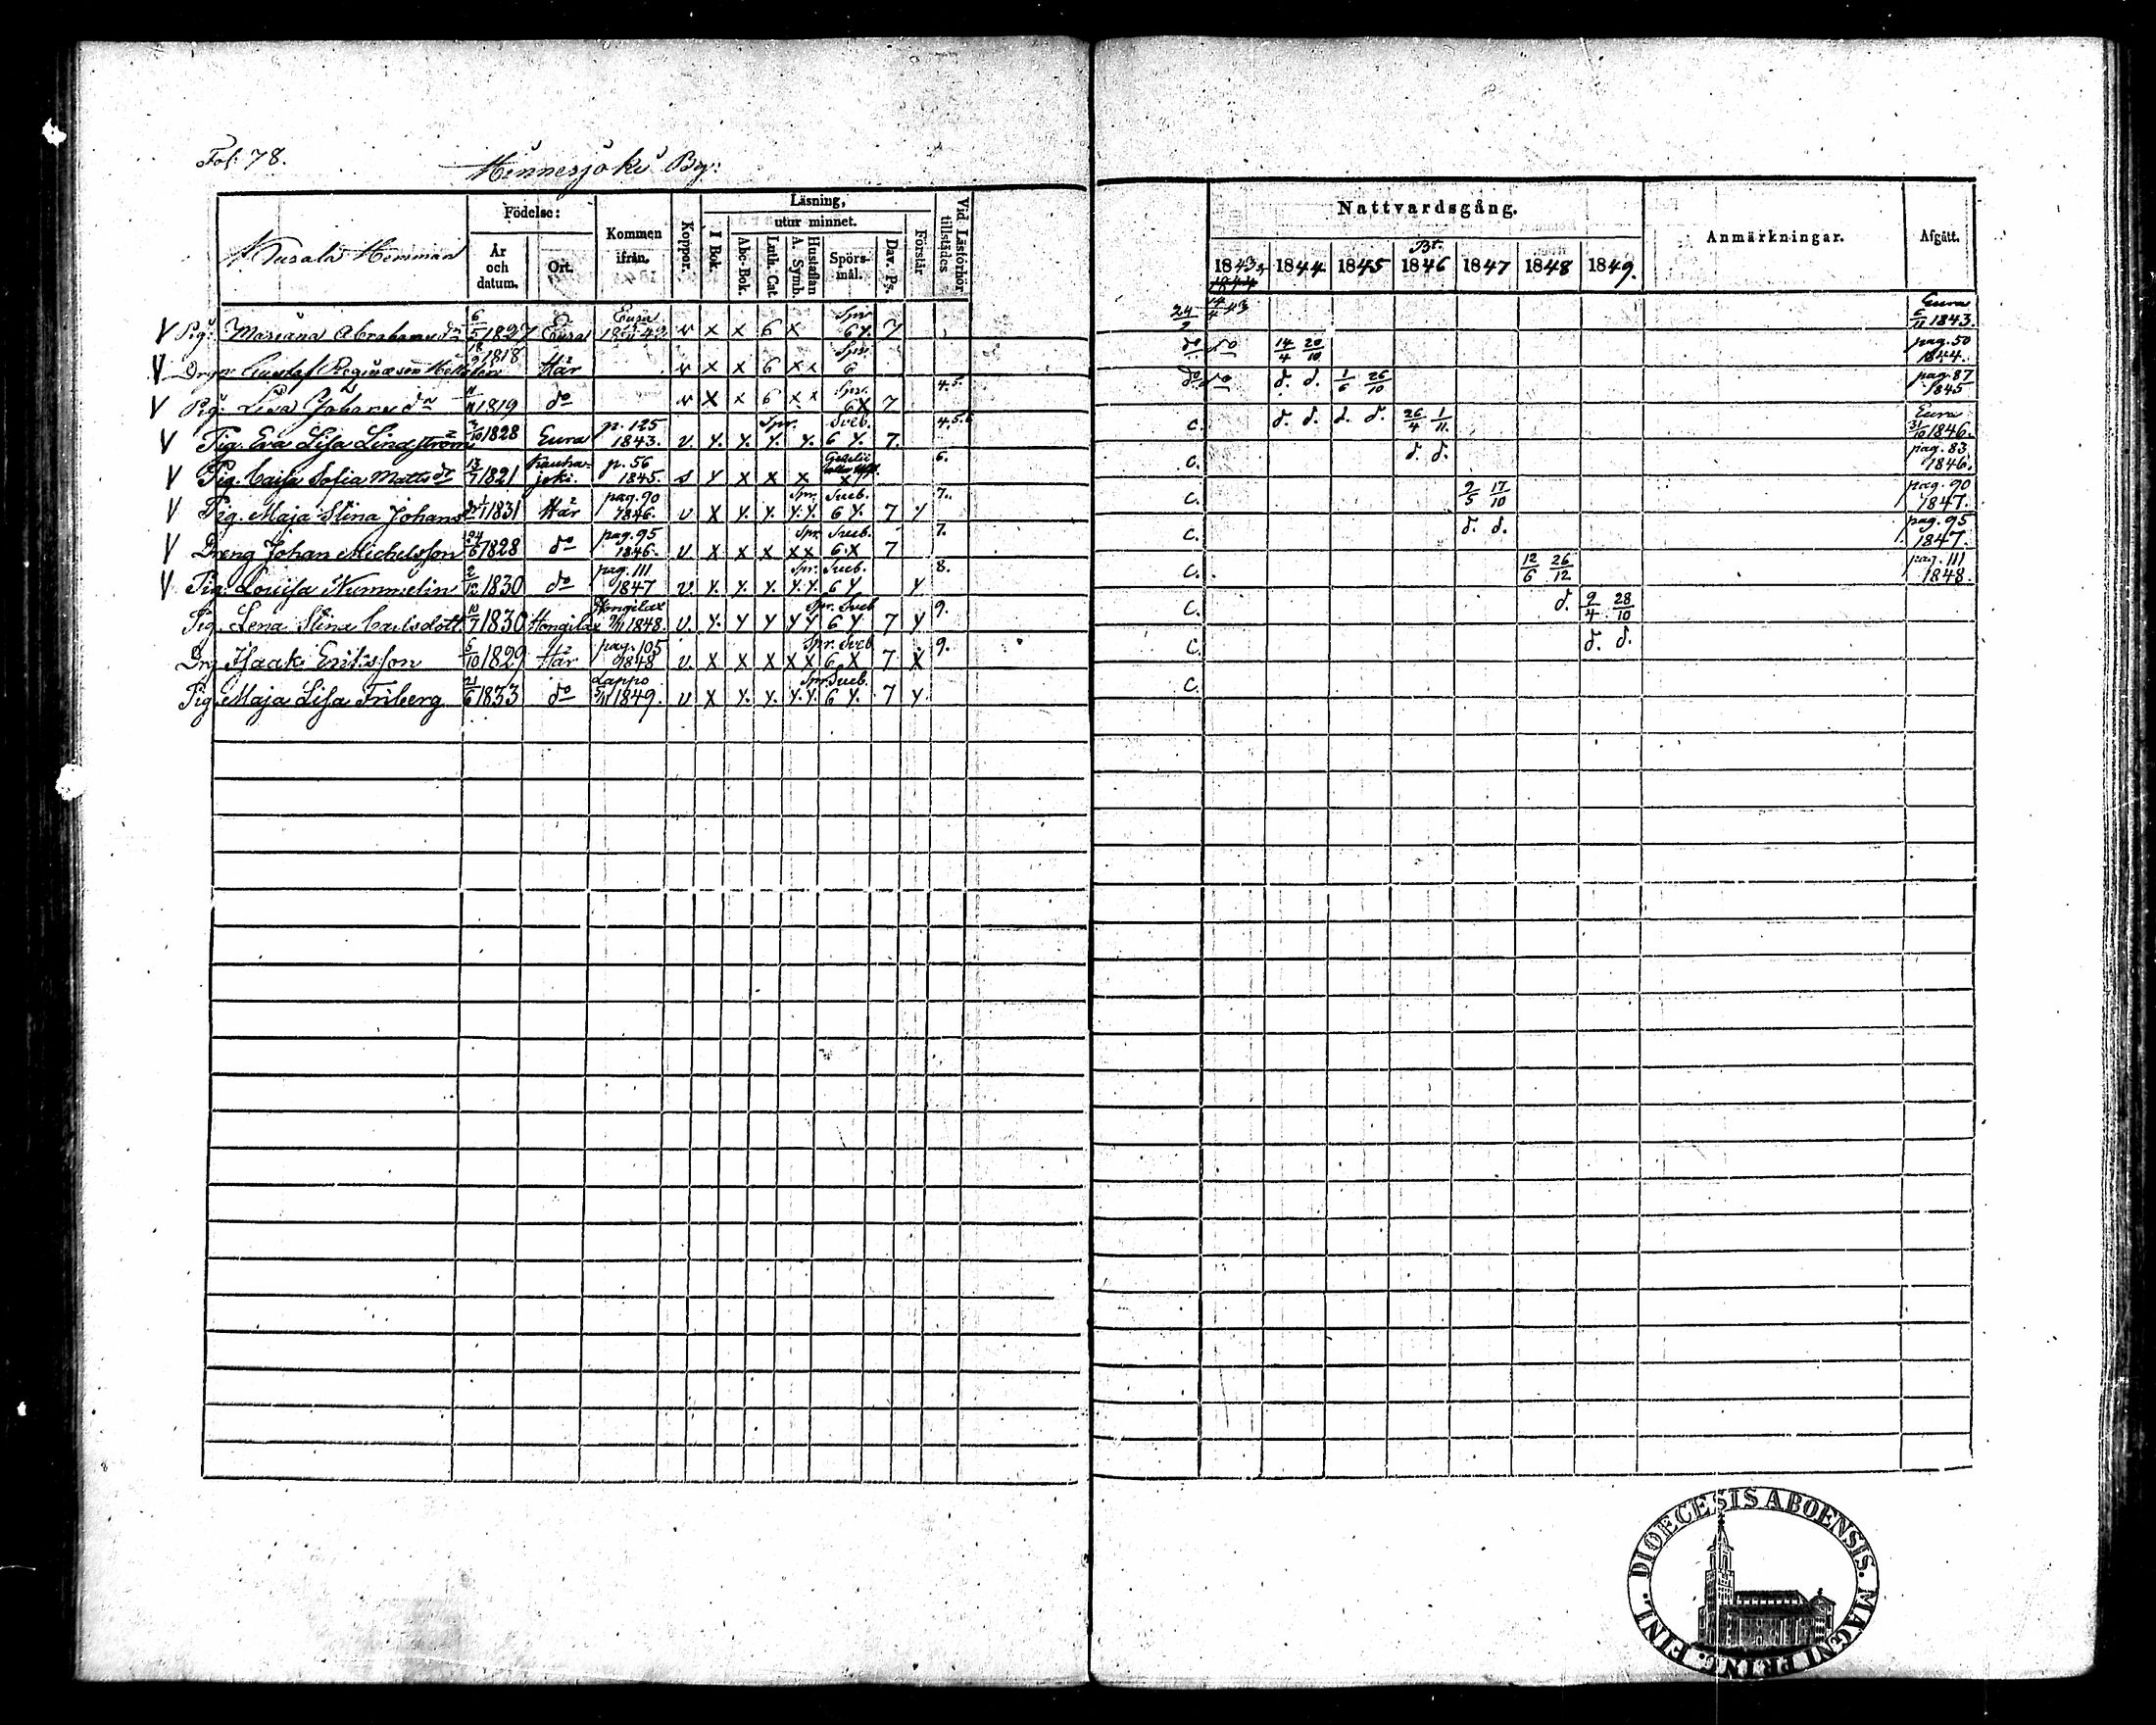 Fol: 78.
Hinnerjoki By:
Hemman
Födelse:
År och datum.
Ort.
Kommen ifrån.
Koppor.
Läsning,
utur minnet.
I Bok.
Abc-Bok.
Luth. Cat.
Hustaflan A. Symb.
Spörs-mål.
Dav. Ps.
Förstår
Vid Läsförhör tillstädes
Nattvardsgång.
1843 1844. 1845 1846 1847 1848 1849.
Anmärkningar.
Afgått.
V Pig. Mariana Abrahams dr 6/5 1827 Eura Eura v x x 6 x Spr 6 y. 7 24/9 14/4 43 Eura 6/11 1843.
V Gustaf 1818 Här v x x 6 x x Spr. 6 do do 14/4 20/10 pag. 50 1844.
V Pig. Johans dr 1819 do v x x 6 x x Spr. 6 x 7 4.5. do do d. d. 1/6 26/10 pag. 87 1845
V Pig. Eva Lisa Lindström 1828 Eura p. 125 1843. v. y. y. Spr. y. y. Sveb. 6 y. 7. 4.5.6 c. d. d. d. d. 26/4 1/11. Eura 31/10 1846.
V Pig. Caisa Sofia Matts dr 13/7 1821 Kauhajoki. p. 56 1845. s y x x x 6. c. d. d. pag. 83 1846.
V Pig. Maja Stina Johans 1831 Här pag. 90 1846. v x y. y. Spr. y. y. Sveb. 6 y. 7 y 7. c. 9/5 17/10 pag. 90 1847.
V Dreng Johan Michelsson 24/6 1828 do pag. 95 1846. v. x x x Spr. x x Sveb. 6. x 7 7. c. d. d. pag. 95 1847.
V Pig. Lovisa Nummelin 2/12 1830 do pag. 111 1847 v. y. y. y. Spr. y. y. Sveb. 6 y y 8. c. 12/6 26/12 pag. 111 1848.
Pig. Lena Stina Carlsdott 10/7 1830 Hongilax Hongilax 1848. v. y. y y Spr. y y Sveb 6 y 7 y 9. c. d. 9/4 28/10
Drg Isaak Eriksson 5/10 1829 Här pag. 105 1848 v. x x x Spr. x x Sveb 6 x 7 x 9. c. d. d.
Pig. Maja Lisa Friberg 21/6 1833 do Lappo 5/11 1849. v x y. y. Spr. y. y. Sveb. 6 y. 7 y. c.
DIOECESIS ABOENSIS. MAGNI PRINC. FINL.